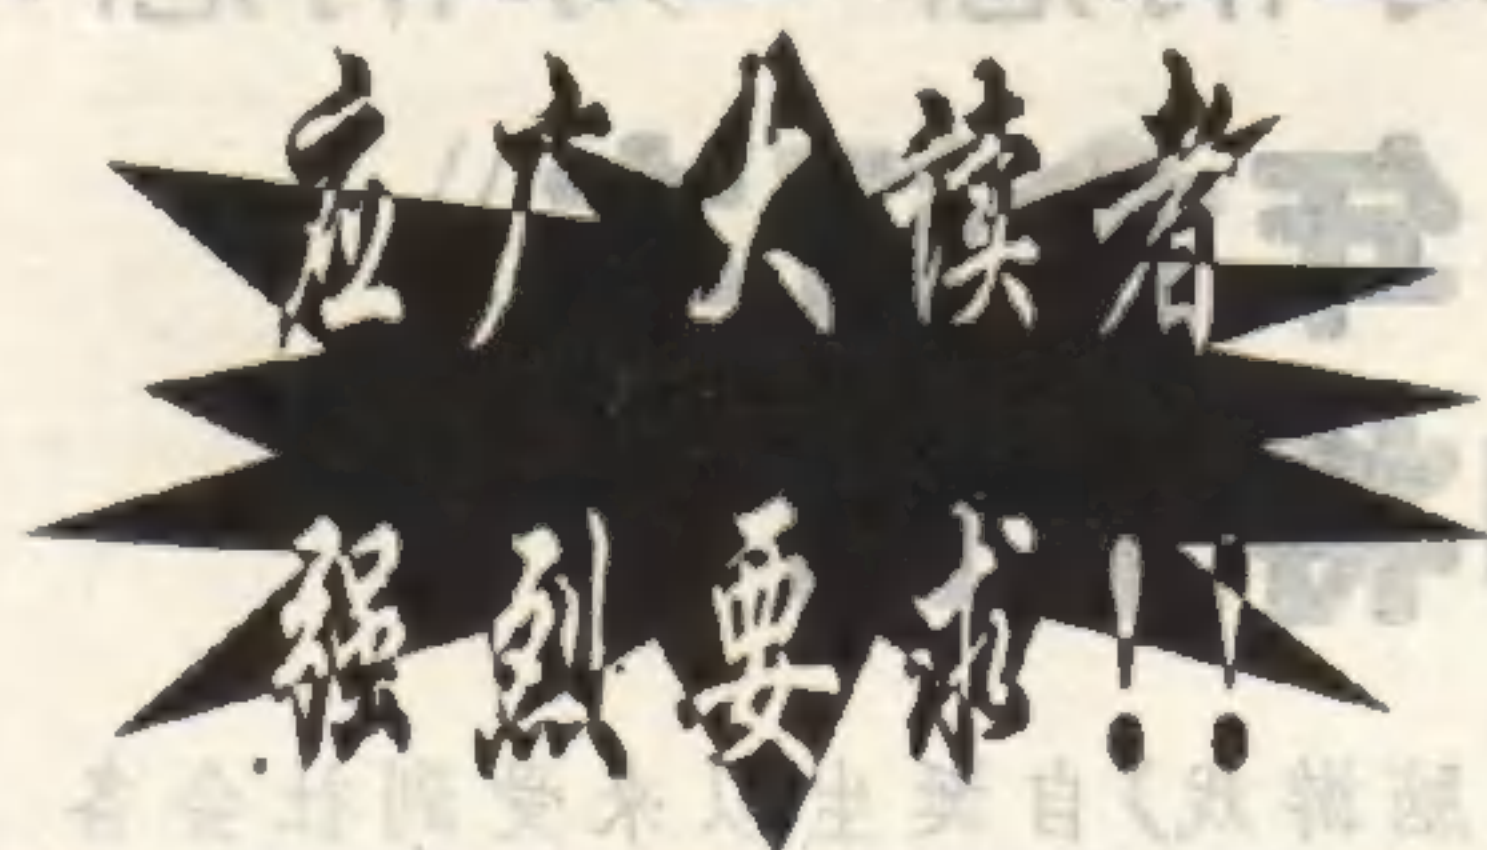 应广大读者
强烈要求!!